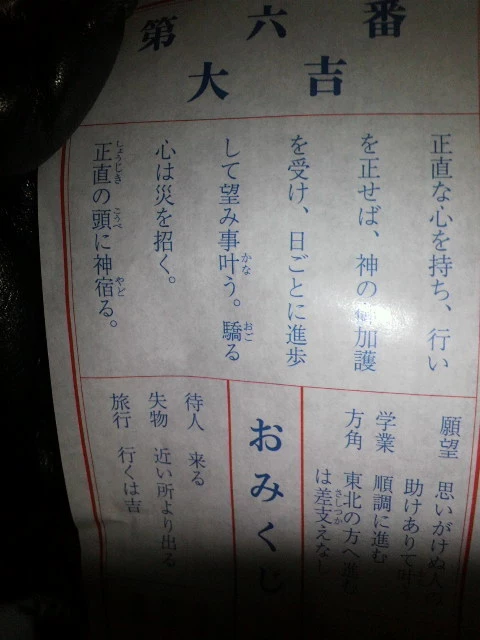 第六番
大吉
正直な心を持ち、行い
を正せば、神の御加護
を受け、日ごとに進歩
して望み事叶う。驕る
心は災を招く。
正直の頭に神宿る。
願望 思いがけぬ人
助けありて叶
学業 順調に進む
方角 東北の方へ進む
は差支えなし
おみくじ
待人 来る
失物 近い所より出る
旅行 行くは吉